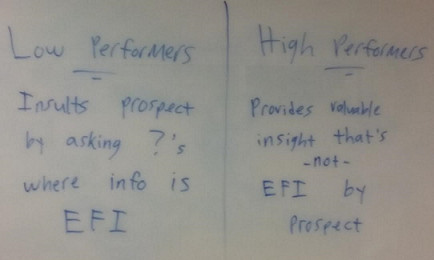 Low Performers
Insults prospect
by asking ?'s
where info is
EFI
High Performers
Provides valuable
insight that's
-not-
EFI by
Prospect